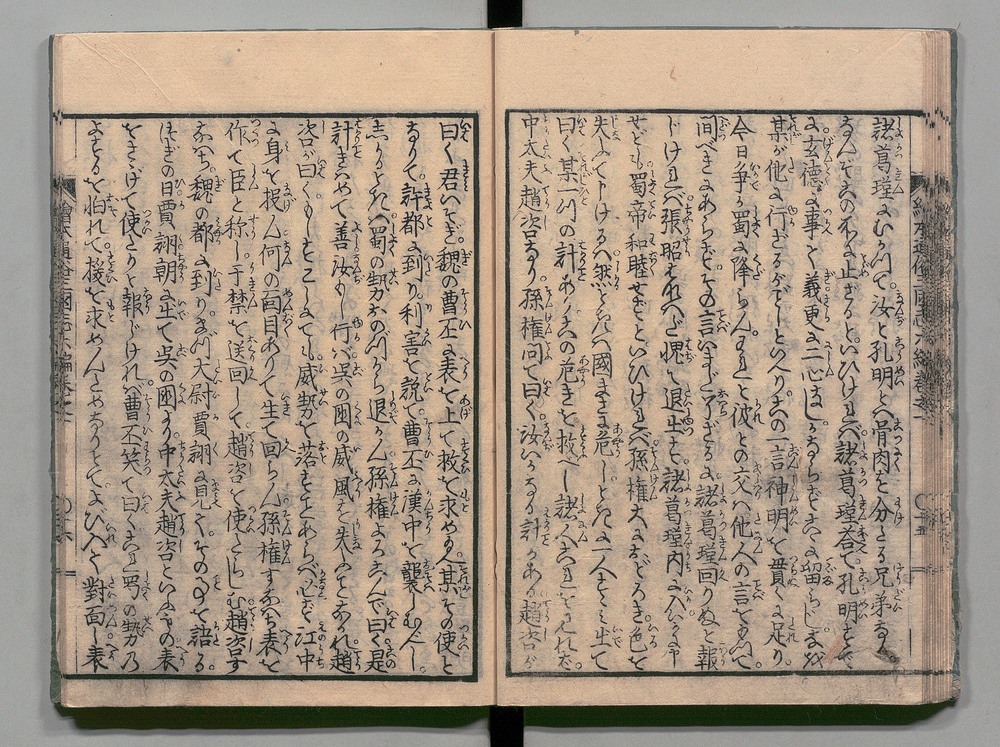 諸葛瑾にいかつて汝と孔明とハ骨肉を分たる兄弟なる
なんぞこれを止ざるといひけれバ諸葛瑾答て孔明すでに
玄徳に事へて義更に二心ましまさず
某が他に行ざるがごとしといへり此の一言神明を貫くに足り
今日争か蜀に降らんそれと彼との交ハ他人の言にて
間べきにあらずとその言いまだ了ざるに諸葛瑾回りぬと報
じけれバ張昭それ愧て退出せり諸葛瑾内に入
せども蜀帝和睦せずといひけれバ孫権大におどろき色を
失なて申けるハ然るときハ國まさに危しとときに一人すゝみ出て
曰く某一つの計あり此の危きを救べし諸人これを見れば
中大夫趙咨なり孫権問て曰く汝いかなる計かある趙咨が
曰く君いそぎ魏の曹丕に表を上て救を求め某その使と
なりて許都に到り利害を説て曹丕に漢中を襲しむべし
しかるときハ蜀の勢おのづから退かん孫権よろこんで曰く是
計きハめて善汝もし行バ呉の國の威風を失ふことなかれ趙
咨が曰くもしすこしにても威勢を落すことあらバ必ず江中
に身を投ん何の面目ありて生て回らん孫権すなハち表を
作て臣と称し于禁を送回して趙咨を使とらしむ趙咨す
なハち魏の都に到りまづ大尉賈詡に見えその事を語る
つぎの日賈詡朝に出て呉の國より中大夫趙咨といふもの表
をさゝげて使たりと報じけれバ曹丕笑て曰くこれ蜀の勢乃
よするを怕れて援を求めんとするなりとてよび入て對面し表